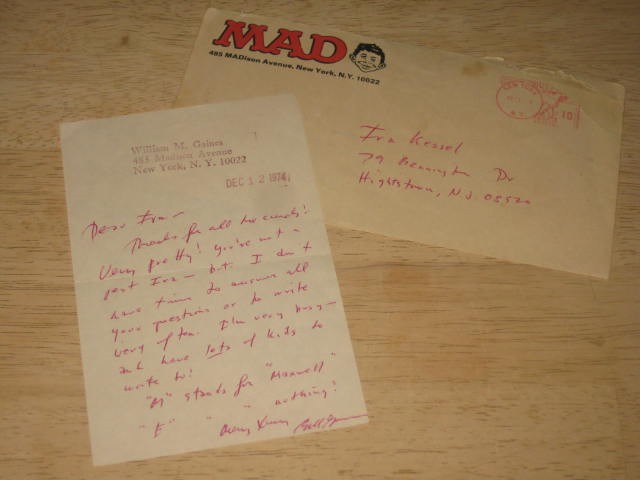 MAD
485 MADison Avenue, New York, N.Y. 10022
10
Ira Kessel
79 Bennington Dr
Hightstown, N.J. 08520
William M. Gaines
485 Madison Avenue
New York, N. Y. 10022
DEC 12 1974
Dear Ira—
Thanks for all the cards!
Very pretty! You're not a
pest Ira— but I don't
have time to answer all
your questions or to write
very often. I'm very busy—
and have lots of kids to
write to!
"M" stands for "Maxwell"
"E" " " nothing!
Merry Xmas